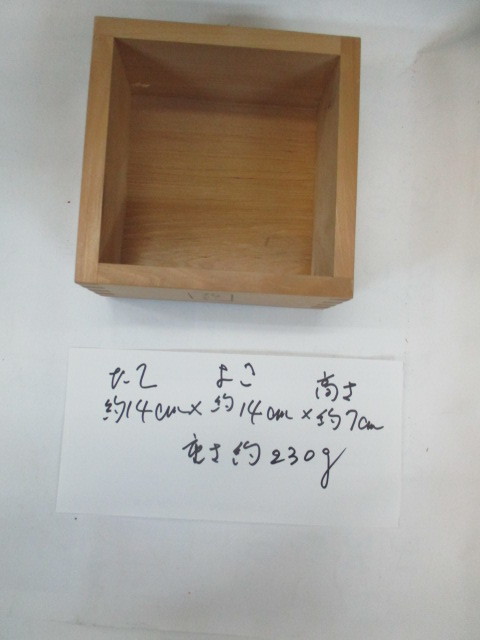 たて よこ 高さ
約14cm×約14cm×約7cm
重さ約230g